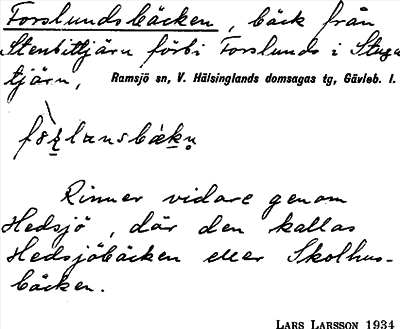 Forslundsbäcken, bäck från
Stenbittjärn förbi Forslunds i Stuga
tjärn, Ramsjö sn, V. Hälsinglands domsagas tg, Gävleb. l.
Rinner vidare genom
Hedsjö, där den kallas
Hedsjöbäcken eller Skolhus-
bäcken.
LARS LARSSON 1934